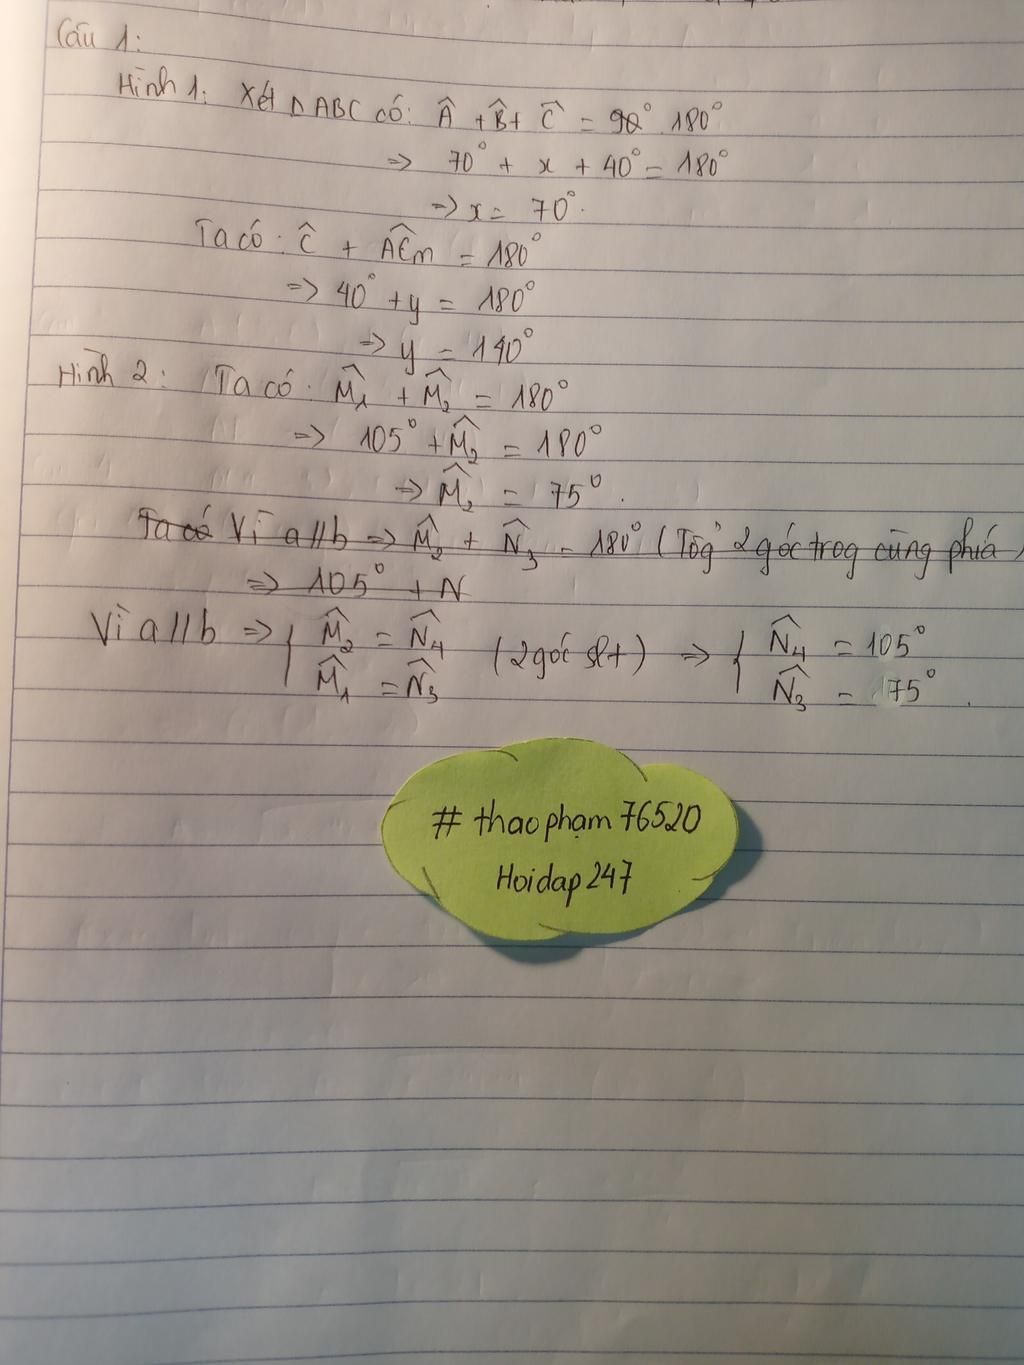 Câu 1:
Hình 1: Xét Δ ABC có: Â + B̂ + Ĉ = 90° 180°
=> 70° + x + 40° = 180°
=> x = 70°.
Ta có: Ĉ + ACm = 180°
=> 40° + y = 180°
=> y = 140°
Hình 2: Ta có: M̂₁ + M̂₂ = 180°
=> 105° + M̂₂ = 180°
=> M̂₂ = 75°.
Ta có Vì a//b => M̂₂ + N̂₃ = 180° (Tổg 2 góc trog cùng phía)
=> 105° + N
Vì a//b => { M̂₂ = N̂₄ (2 góc slt) => { N̂₄ = 105°
M̂₁ = N̂₃ N̂₃ = 75°.
# thaophạm76520
Hoidap247